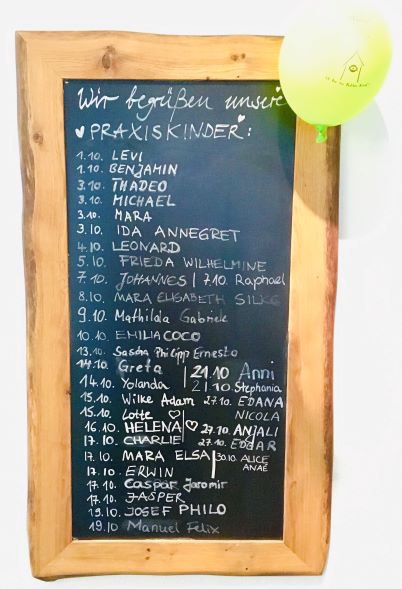 Wir begrüßen unsere
PRAXISKINDER:
1.10. LEVI
1.10. BENJAMIN
3.10. THADEO
3.10. MICHAEL
3.10. MARA
3.10. IDA ANNEGRET
4.10. LEONARD
5.10. FRIEDA WILHELMINE
7.10. JOHANNES | 7.10. Raphael
8.10. MARA ELISABETH SILKE
9.10. Mathilda Gabriele
10.10. EMILIA COCO
13.10. Sascha Philipp Ernesto
14.10. Greta
14.10. Yolanda
15.10. Wilke Adam
15.10. Lotte
16.10. HELENA
17.10. CHARLIE
17.10. MARA ELSA
17.10. ERWIN
17.10. Caspar Jaromir
17.10. JASPER
19.10. JOSEF PHILO
19.10 Manuel Felix
21.10 Anni
21.10 Stephania
27.10. EDANA
NICOLA
27.10. ANJALI
27.10. EDGAR
30.10. ALICE
ANAÉ